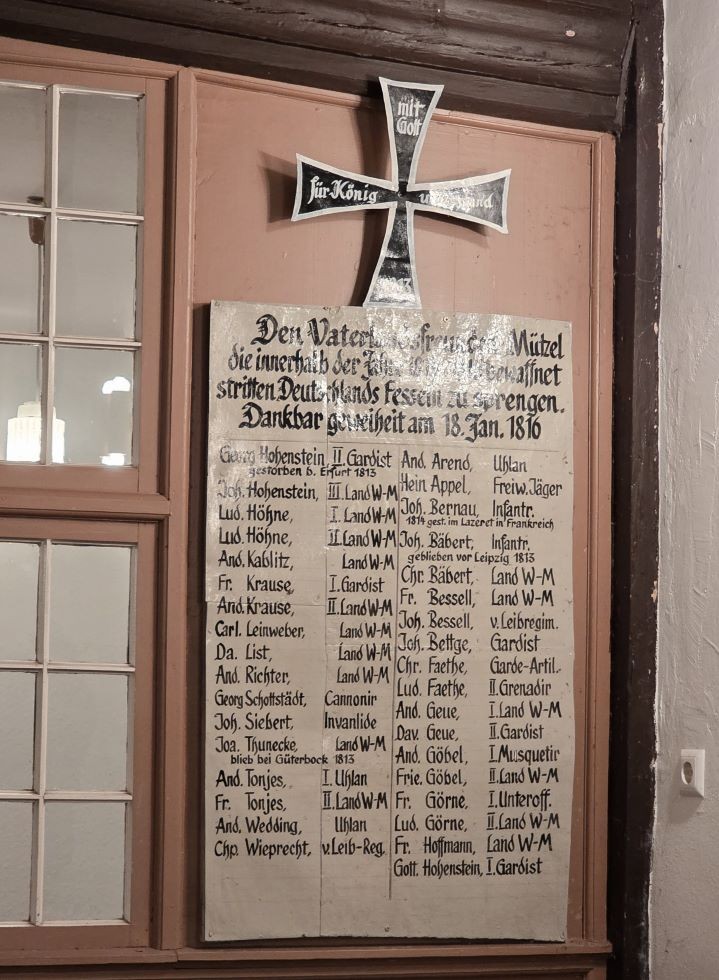 mit
Gott
für König
Den Vaterlandsfreunden Mützel
die innerhalb der Jahre bewaffnet
stritten Deutschlands Fesseln zu sprengen.
Dankbar geweiheit am 18. Jan. 1816
Georg Hohenstein II. Gardist
gestorben b. Erfurt 1813
Joh. Hohenstein, III. Land W-M
Lud. Höhne, I. Land W-M
Lud. Höhne, II. Land W-M
And. Kablitz, Land W-M
Fr. Krause, I. Gardist
And. Krause, II. Land W-M
Carl. Leinweber, Land W-M
Da. List, Land W-M
And. Richter, Land W-M
Georg Schottstädt, Cannonir
Joh. Siebert, Invanlide
Joa. Thunecke, Land W-M
blieb bei Güterbock 1813
And. Tonjes, I. Uhlan
Fr. Tonjes, II. Land W-M
And. Wedding, Uhlan
Chp. Wieprecht, v. Leib-Reg.
And. Arend, Uhlan
Hein Appel, Freiw. Jäger
Joh. Bernau, Infantr.
1814 gest. im Lazeret in Frankreich
Joh. Bäbert, Infantr.
geblieben vor Leipzig 1813
Chr. Bäbert, Land W-M
Fr. Bessell, Land W-M
Joh. Bessell, v. Leibregim.
Joh. Bettge, Gardist
Chr. Faethe, Garde-Artil.
Lud. Faethe, II. Grenadir
And. Geue, I. Land W-M
Dav. Geue, II. Gardist
And. Göbel, I. Musquetir
Frie. Göbel, II. Land W-M
Fr. Görne, I. Unteroff.
Lud. Görne, II. Land W-M
Fr. Hoffmann, Land W-M
Gott. Hohenstein, I. Gardist